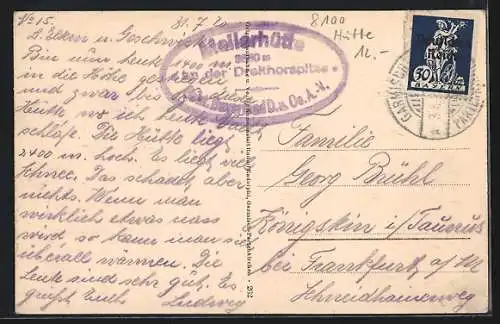 No 15.
31.7.2
L. Eltern u. Geschwister
Bin nun heute 1400 m
in die Höhe
und zwar
Hütte wo ich heute Nacht
schlafe. Die Hütte liegt
2400 m. hoch. Es liegt viel
Schnee. Das schadet aber
nichts. Wenn man
wirklich etwas nass
wird so kann man sich
überall wärmen. Die
Leute sind sehr gut. Es
grüßt Euch Ludwig
Meilerhütte
an der Dreithorspitze
D. u. Oe. A.-V.
8100
Hütte
12.-
50
BAYERN
Familie
Georg Brühl
Königstein i/Taunus
bei Frankfurt a/M
Schneidhainerweg